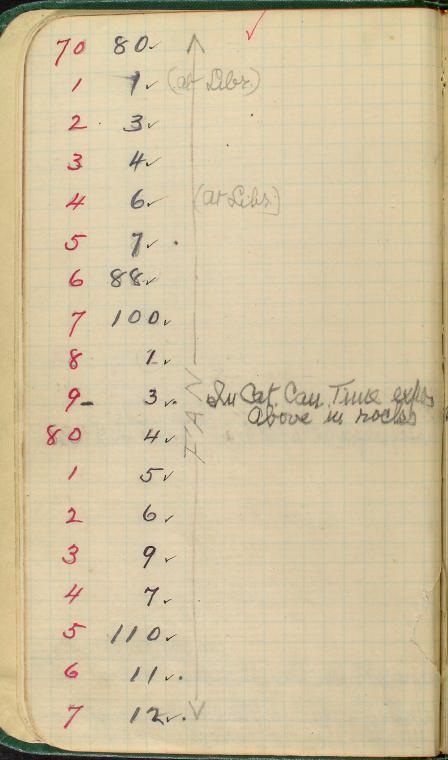 70 80✓
1 1✓ (at Libr.)
2 3✓
3 4✓
4 6✓ (at Libr.)
5 7✓
6 88✓
7 100✓
8 1✓
9 3✓ In Cat. Can. Time
above in rocks
80 4✓
1 5✓
2 6✓
3 9✓
4 7✓
5 110✓
6 11✓
7 12✓